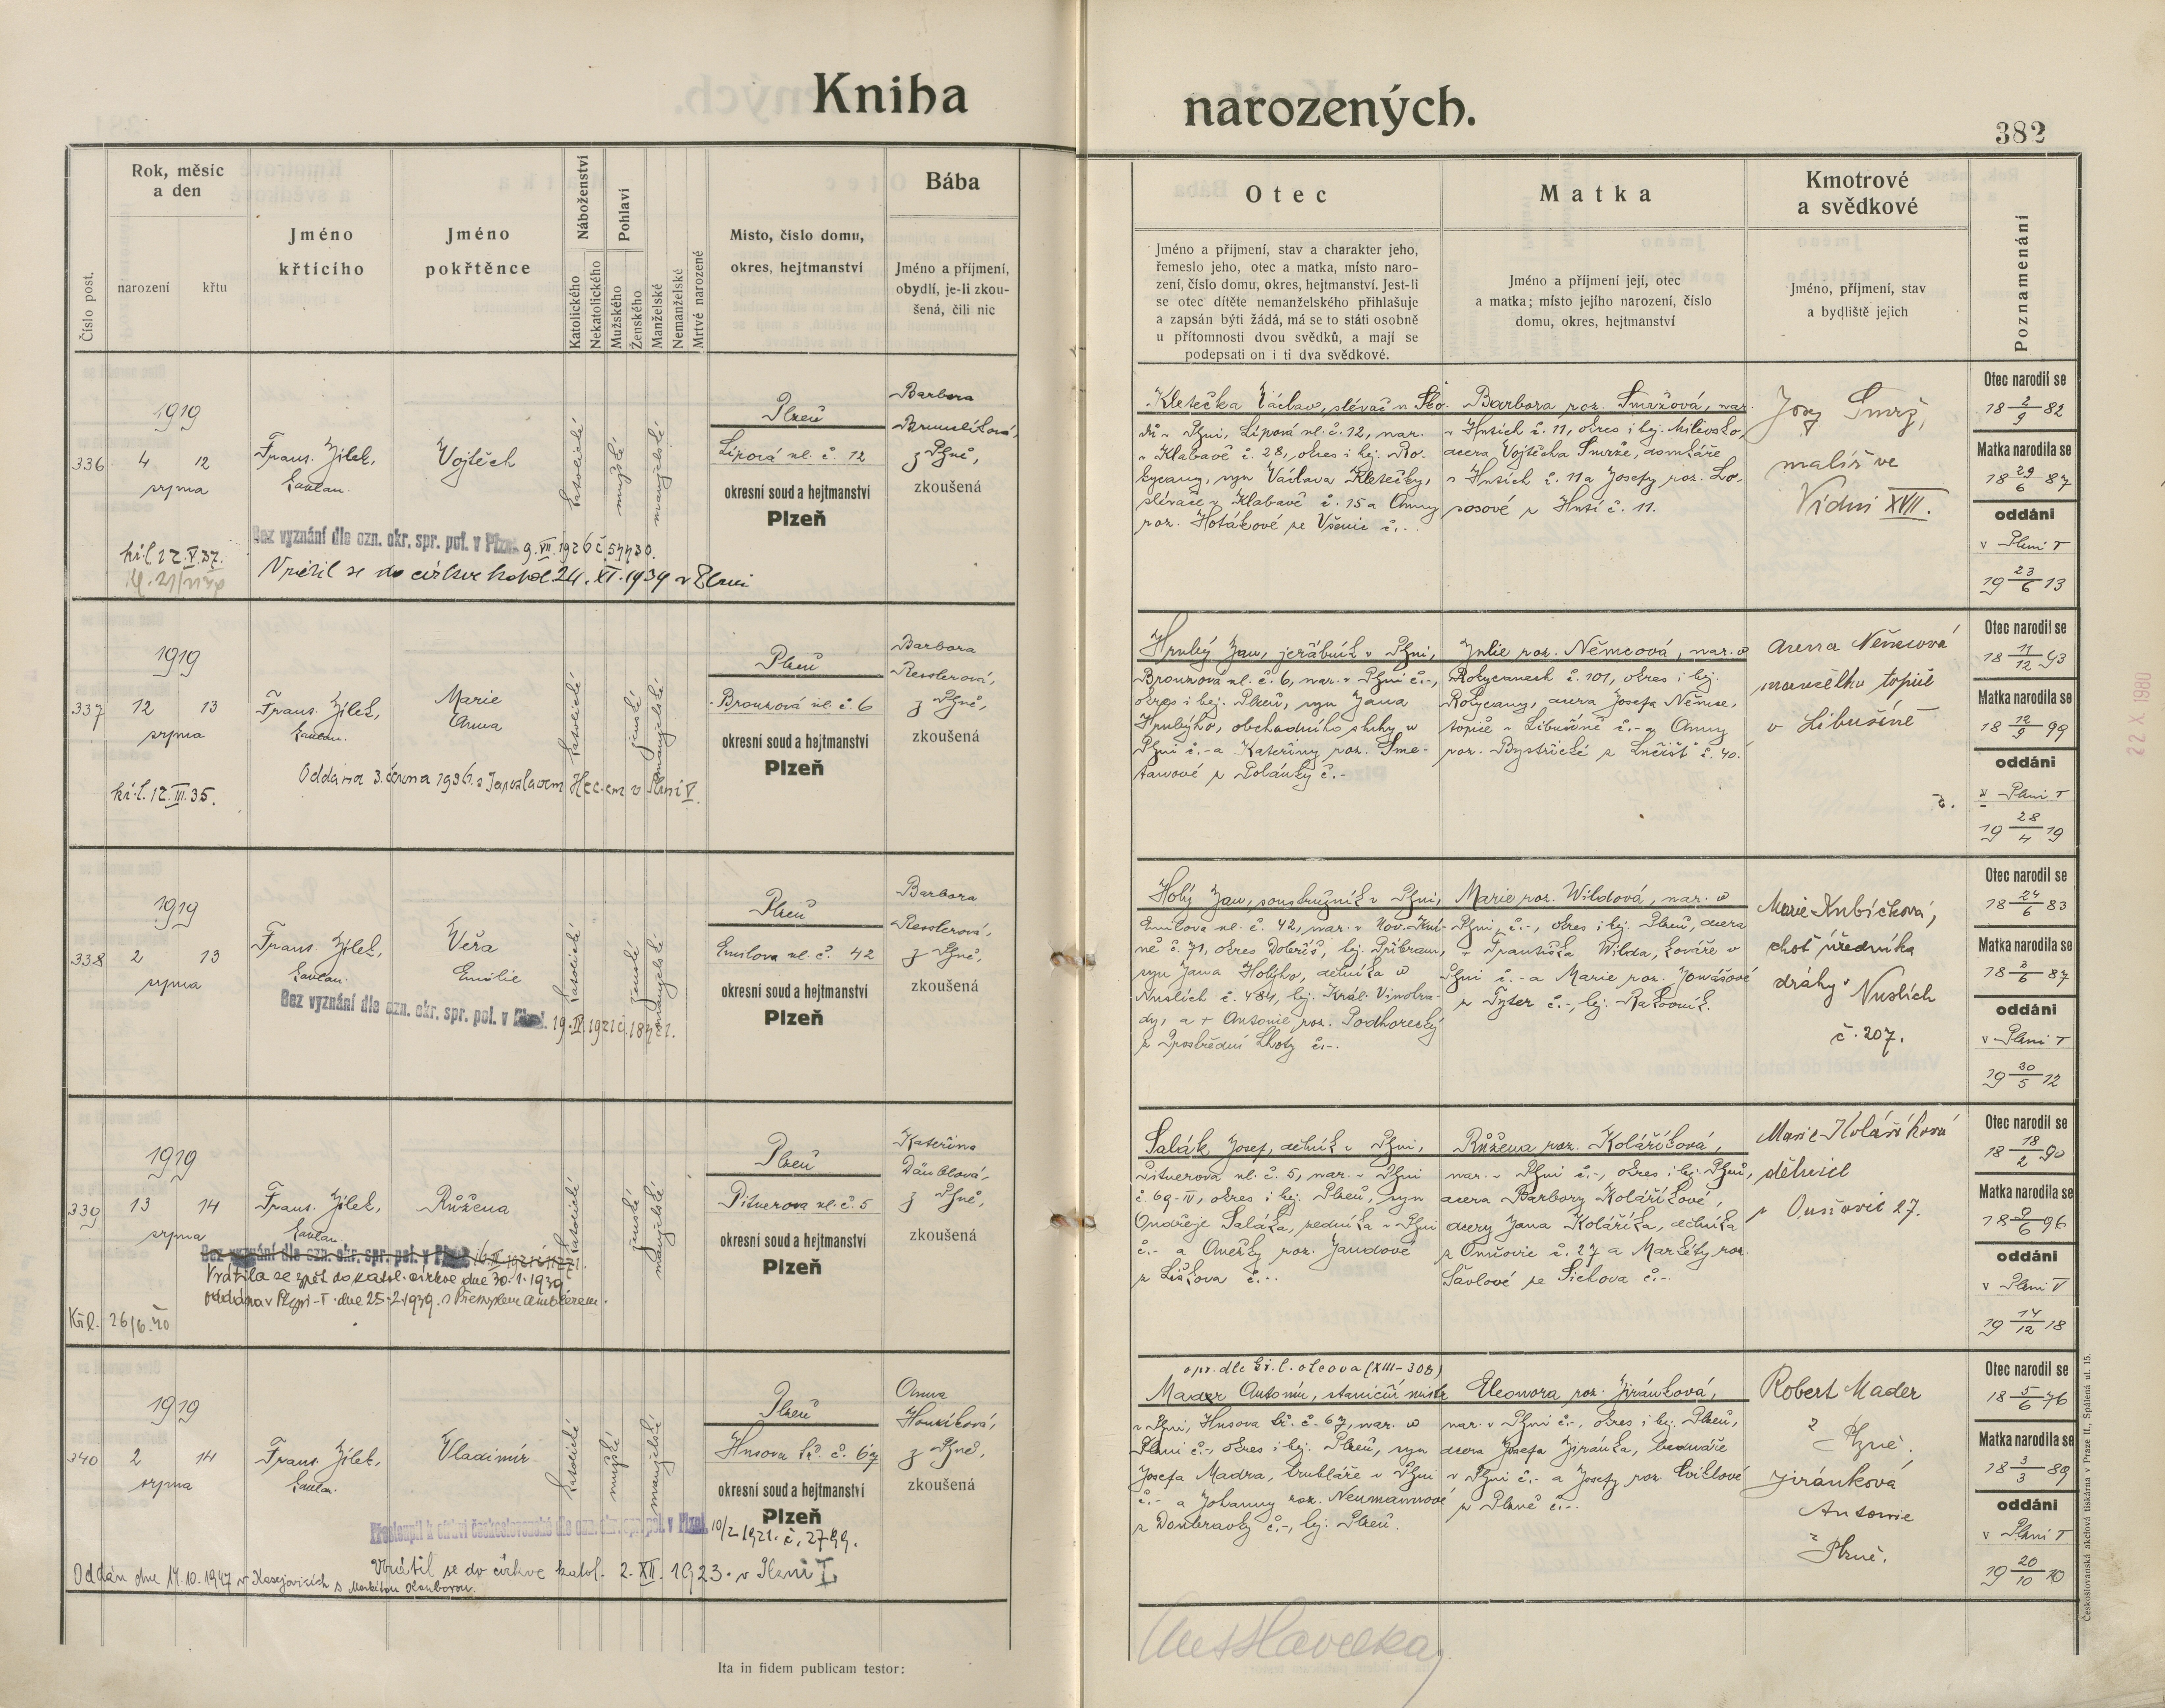 Kniha narozených.
382
Číslo post.
Rok, měsíc
a den
narození
křtu
Jméno
křticího
Jméno
pokřtěnce
Náboženství
Katolického
Nekatolického
Pohlaví
Mužského
Ženského
Manželské
Nemanželské
Mrtvé narozené
Místo, číslo domu,
okres, hejtmanství
Bába
Jméno a příjmení,
obydlí, je-li zkou-
šená, čili nic
Otec
Jméno a příjmení, stav a charakter jeho,
řemeslo jeho, otec a matka, místo naro-
zení, číslo domu, okres, hejtmanství. Jest-li
se otec dítěte nemanželského přihlašuje
a zapsán býti žádá, má se to státi osobně
u přítomnosti dvou svědků, a mají se
podepsati on i ti dva svědkové.
Matka
Jméno a příjmení její, otec
a matka; místo jejího narození, číslo
domu, okres, hejtmanství
Kmotrové
a svědkové
Jméno, příjmení, stav
a bydliště jejich
Poznamenání
336
1919
4 12
srpna
Frant. Jílek,
kaplan.
Vojtěch
katolické
mužské
manželské
Plzeň
Lipová ul. č. 12
okresní soud a hejtmanství
Plzeň
Barbora
z Plzně,
zkoušená
Bez vyznání dle ozn. okr. spr. pol. v Plzni 9. VII. 1926 č. 57430.
kř. l. 12. V. 37.
Vrátil se do církve katol 24. XI. 1939 v Plzni
Kletečka Václav, slévač u Ško-
dů v Plzni, Lipová ul. č. 12, nar.
v Klabavě č. 28, okres i hej. Ro-
kycany, syn Václava Kletečky,
slévače v Klabavě č. 15 a Anny
roz. Hotákové ze Všenic č. -.
Barbora roz. Smržová, nar.
v Hrtích č. 11, okres i hej. Milevsko,
dcera Vojtěcha Smrže, domkáře
v Hrtích č. 11 a Josefy roz. Lo-
sosové z Hrtí č. 11.
Josef Smrž,
malíř ve
Vídni XVII.
Otec narodil se
18 2/9 82
Matka narodila se
18 29/6 87
oddáni
v Plzni I
19 23/6 13
337
1919
12 13
srpna
Frant. Jílek,
kaplan.
Marie
Anna
katolické
ženské
manželské
Plzeň
Bronzová ul. č. 6
okresní soud a hejtmanství
Plzeň
Barbora
Resslerová,
z Plzně,
zkoušená
Oddána 3. června 1936 s Jaroslavem Hec. em v Plzni V.
kř. l. 12. III. 35.
Hrubý Jan, jeřábník v Plzni,
Bronzová ul. č. 6, nar. v Plzni č. -,
okres i hej. Plzeň, syn Jana
Hrubýho, obchodního sluhy v
Plzni č. - a Kateřiny roz. Sme-
tanové z Polánky č. -
Julie roz. Němcová, nar. v
Rokycanech č. 101, okres i hej.
Rokycany, dcera Josefa Němce,
topiče v Libušíně č. - a Anny
roz. Bystřické z Lnčišt č. 40.
Anna Němcová
manželka topiče
v Libušíně
Otec narodil se
18 11/12 93
Matka narodila se
18 12/9 99
oddáni
v Plzni I
19 28/4 19
338
1919
2 13
srpna
Frant. Jílek,
kaplan.
Věra
Emilie
katolické
ženské
manželské
Plzeň
Emilova ul. č. 42
okresní soud a hejtmanství
Plzeň
Barbora
Resslerová,
z Plzně,
zkoušená
Bez vyznání dle ozn. okr. spr. pol. v Plzni. 19. IV. 1921 č.
Holý Jan, soustružník v Plzni,
Emilova ul. č. 42, nar. v Nov. Kní-
ně č. 71, okres Dobříš, hej. Příbram,
syn Jana Holýho, dělníka v
Nuslích č. 484, hej. Král. Vinohra-
dy, a + Antonie roz. Podhorecký
z Prostřední Lhoty č. -.
Marie roz. Wildová, nar. v
Plzni č. -, okres i hej. Plzeň, dcera
+ Františka Wilda, kováře v
Plzni č. - a Marie roz. Tomášové
z Týřer č. -, hej. Rakovník.
Marie Kubíčková,
choť úředníka
dráhy v Nuslích
č. 207.
Otec narodil se
18 24/6 83
Matka narodila se
18 2/6 87
oddáni
v Plzni I
19 30/5 12
339
1919
13 14
srpna
Frant. Jílek,
kaplan.
Růžena
katolické
ženské
manželské
Plzeň
Pitnerova ul. č. 5
okresní soud a hejtmanství
Plzeň
Kateřina
Däublová,
z Plzně,
zkoušená
Bez vyznání dle ozn. okr. spr. pol. v Plzni
Vrátila se zpět do katol. církve dne 30. 1. 1939
Oddána v Plzni-I. dne 25. 2. 1939. s Přemyslem
Kř. l. 26/6. 40
Salák Josef, dělník v Plzni,
Pitnerova ul. č. 5, nar. v Plzni
č. 69-IV, okres i hej. Plzeň, syn
Ondřeje Saláka, zedníka v Plzni
č. - a Anežky roz. Jandové
z Líškova č. -.
Růžena roz. Koláříková,
nar. v Plzni č. -, okres i hej. Plzeň,
dcera Barbory Koláříkové,
dcery Jana Koláříka, dělníka
z Onšovic č. 27 a Markéty roz.
Šavlové ze Sichova č. -.
Marie Koláříková
dělnice
z Onšovic 27.
Otec narodil se
18 18/2 90
Matka narodila se
18 9/6 96
oddáni
v Plzni V
19 14/12 18
340
1919
2 14
srpna
Frant. Jílek,
kaplan.
Vladimír
katolické
mužské
manželské
Plzeň
Husova tř. č. 67
okresní soud a hejtmanství
Plzeň
Anna
Houzíková,
z Plzně,
zkoušená
Přestoupil k církvi československé dle ozn. okr. spr. pol. v Plzni 10/2 1921. č. 2799.
Vrátil se do církve katol. 2. XII. 1923. v Plzni I.
Oddán dne 14. 10. 1947 v Kasejovicích s Markétou
opr. dle kř. l. otcova (XIII-308)
Mader Antonín, staniční mistr
v Plzni, Husova tř. č. 67, nar. v
Plzni č. -, okres i hej. Plzeň, syn
Josefa Madra, truhláře v Plzni
č. - a Johanny roz. Neumannové
z Doubravky č. -, hej. Plzeň.
Eleonora roz. Jiránková,
nar. v Plzni č. -, okres i hej. Plzeň,
dcera Josefa Jiránka,
v Plzni č. - a Josefy roz. Cviklové
z Plzně č. -.
Robert Mader
z Plzně,
Jiránková
Antonie
z Plzně.
Otec narodil se
18 5/6 76
Matka narodila se
18 3/3 89
oddáni
v Plzni I
19 20/10 10
Ita in fidem publicam testor:
Československá akciová tiskárna v Praze II., Spálená ul. 15.
22 X. 1980